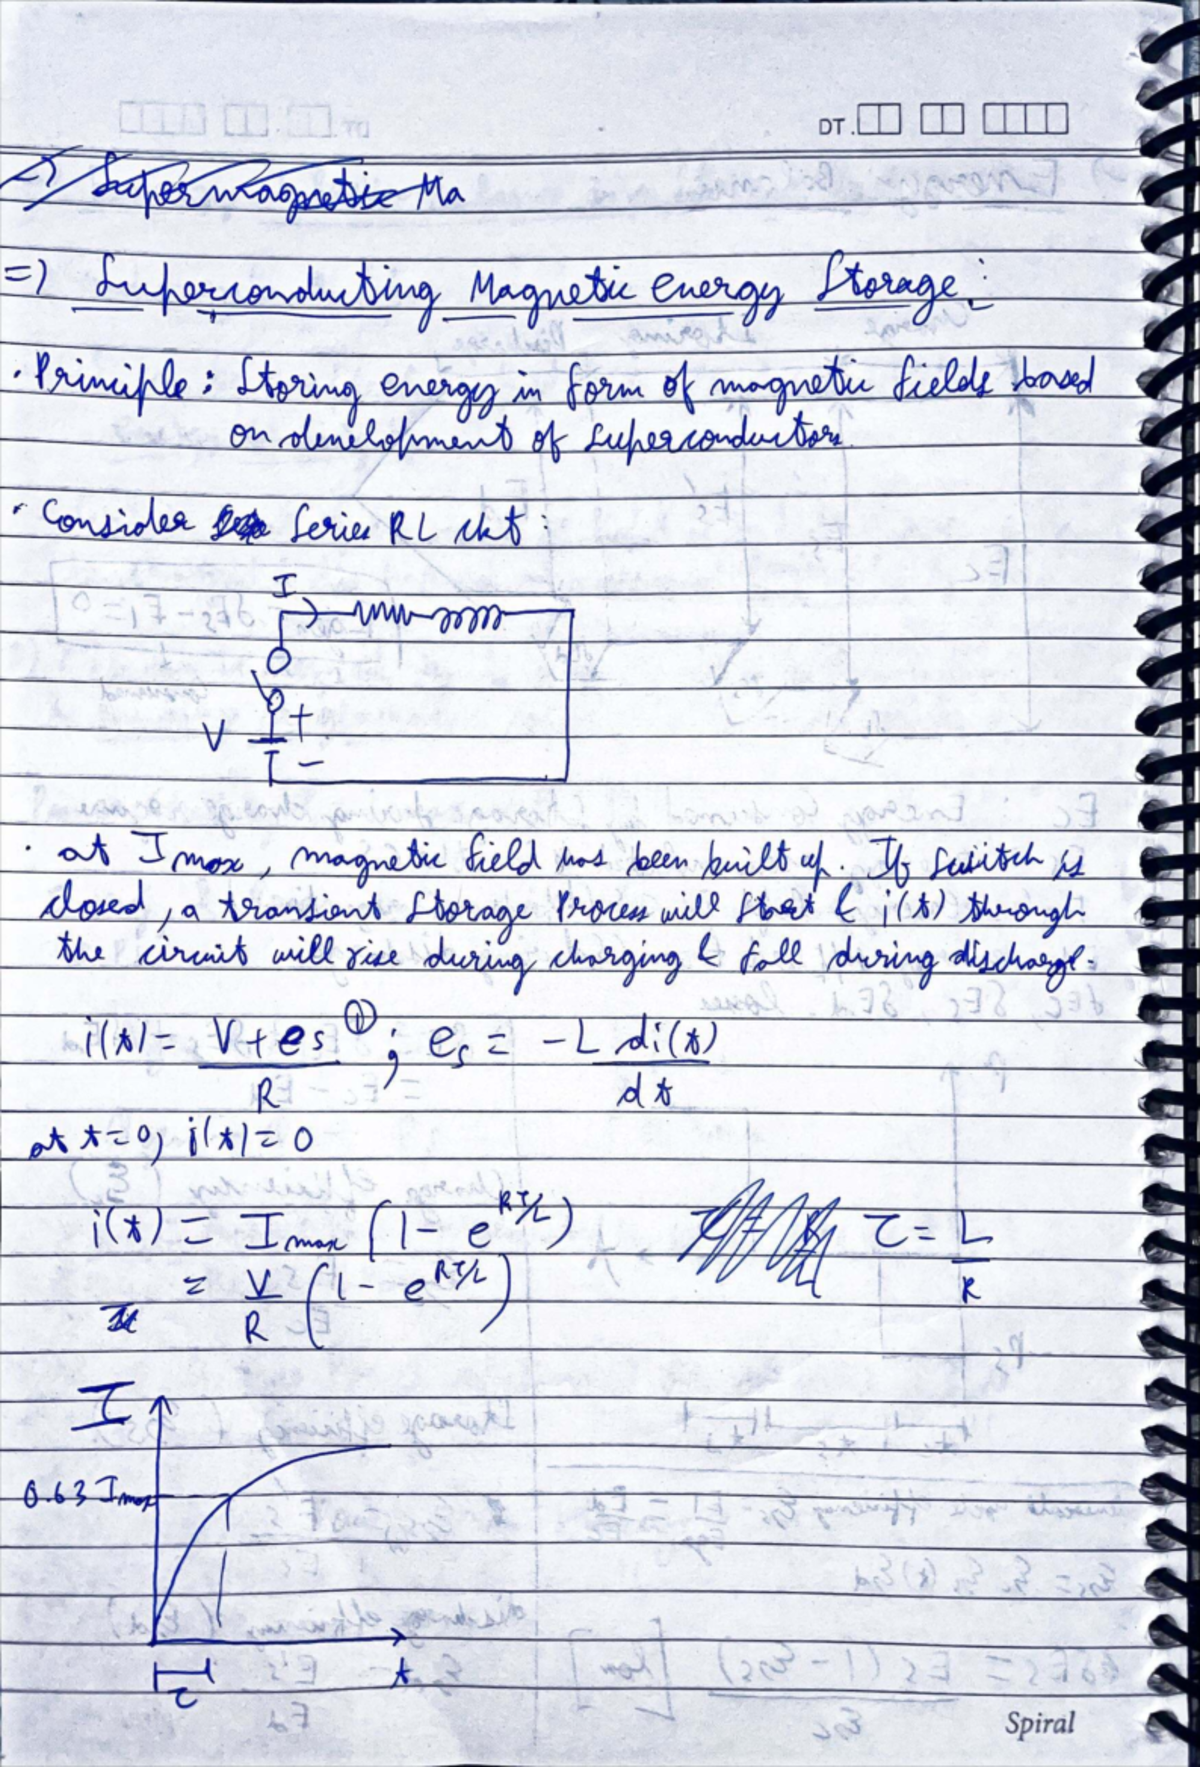 DT.
=> Supermagnetic Ma
=> Superconducting Magnetic energy Storage:
· Principle: Storing energy in form of magnetic fields based
on development of superconductors.
· Consider Series RL ckt:
I
V + -
· at Imax, magnetic field has been built up. If switch is
closed, a transient storage process will start & i(t) through
the circuit will rise during charging & fall during discharge.
i(t) = V + es / R ① ; es = -L di(t) / dt
at t=0, i(t)=0
i(t) = Imax (1 - e^Rt/L) τ = L / R
= V / R (1 - e^Rt/L)
I
0.63 Imax
τ t
Spiral